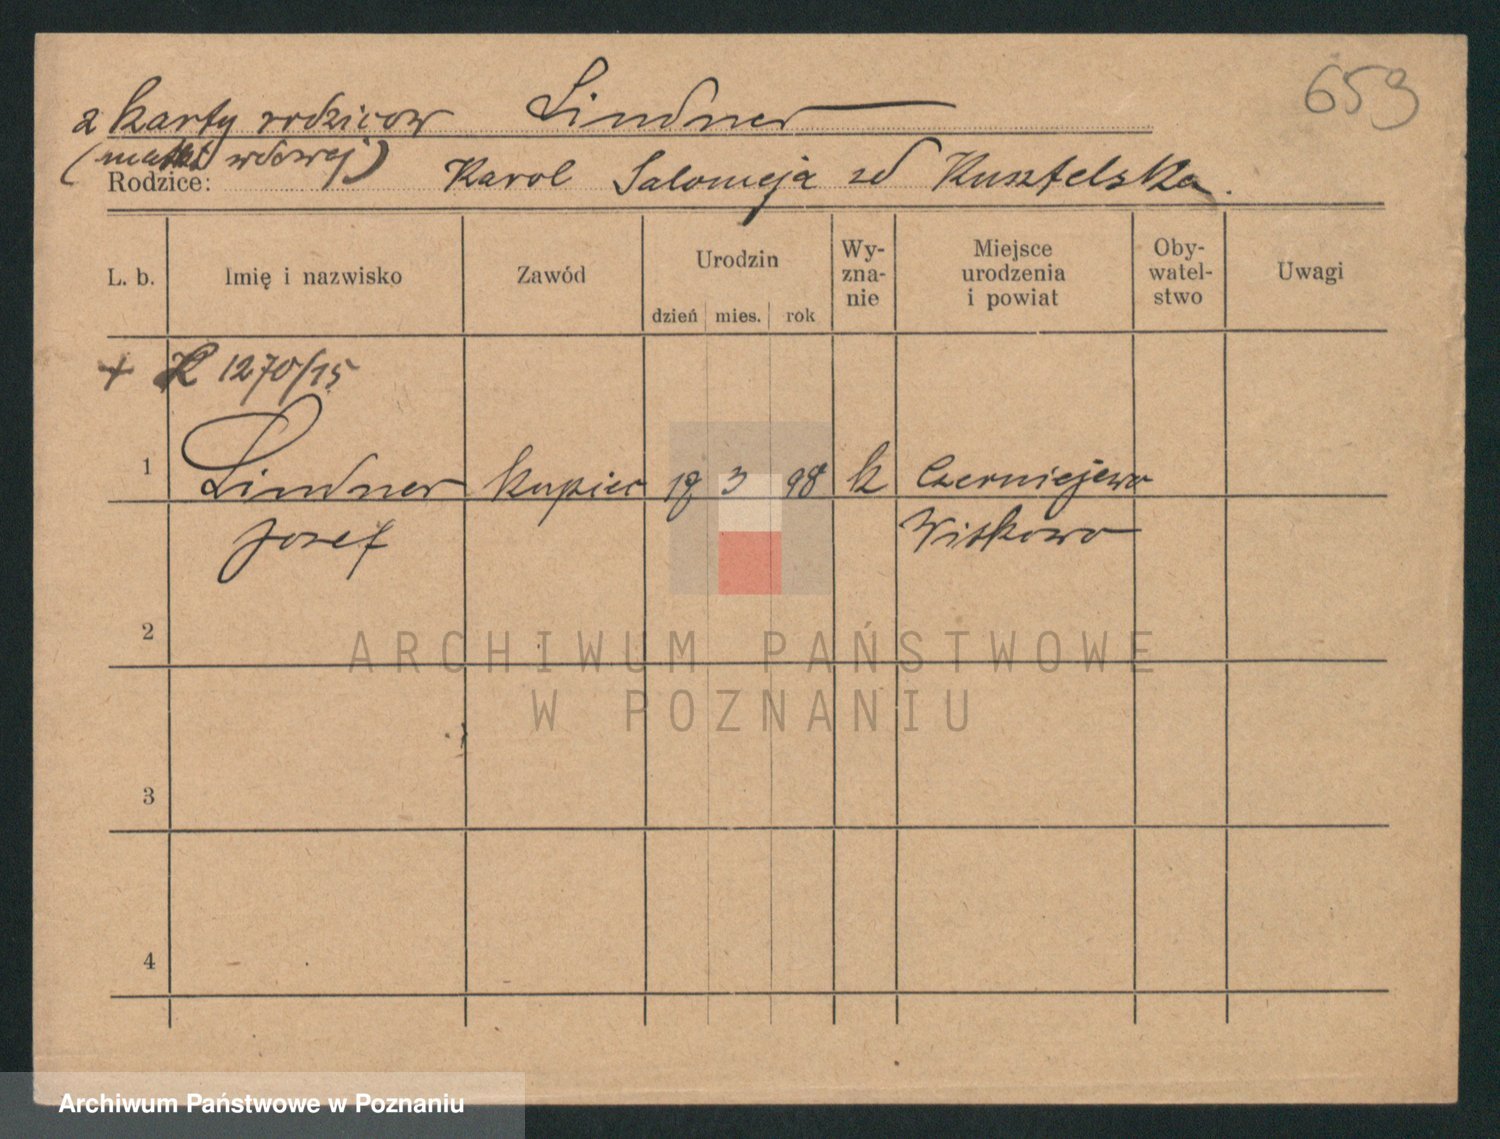 653
z karty rodziców Lindner
(matki wdowej)
Rodzice: Karol Salomeja zd Kusztelska.
L. b. Imię i nazwisko Zawód Urodzin dzień mies. rok Wy-zna-nie Miejsce urodzenia i powiat Oby-watel-stwo Uwagi
+ K 1270/15
1 Lindner kupiec 18 3 98 k Czerniejewo
Josef Witkowo
2
ARCHIWUM PAŃSTWOWE
W POZNANIU
3
4
Archiwum Państwowe w Poznaniu